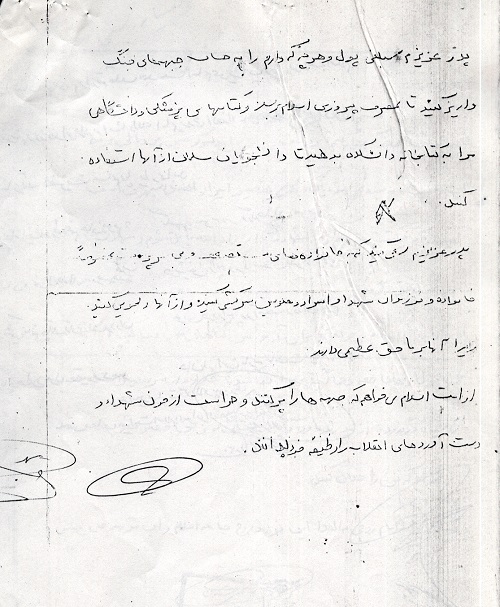 پدر عزیزم مبلغی پول و هر چه که دارم را به حساب جبهه‌های جنگ
واریز کنید تا بمصرف پیروزی اسلام برسد و کتابهای پزشکی و دانشگاهی
مرا به کتابخانه دانشکده بدهید تا دانشجویان مسلمان از آنها استفاده
کنند.
پدر عزیزم سعی کنید که خانواده‌های
خانواده و فرزندان شهدا و اسرا و معلولین سرکشی کنید و از آنها دلجویی کنید
زیرا آنها بر ما حق عظیمی دارند
از امت اسلام می‌خواهم که جبهه‌ها را پر کنند و حراست از خون شهدا و
دست آوردهای انقلاب را وظیفه خود بدانند.